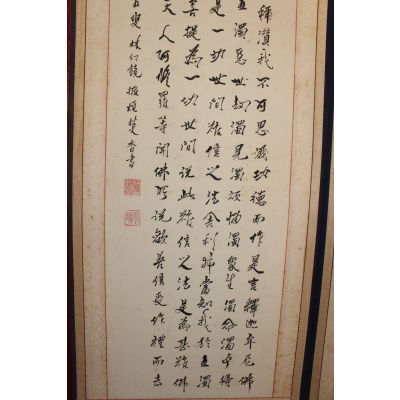 稱讚我不可思議功德而作是言釋迦牟尼佛
五濁惡世劫濁見濁煩惱濁眾生濁命濁中得
是一切世間難信之法舍利弗當知我於五濁
菩提為一切世間說此難信之法是為甚難佛
天人阿修羅等聞佛所說歡喜信受作禮而去
叟林鏡焚香書